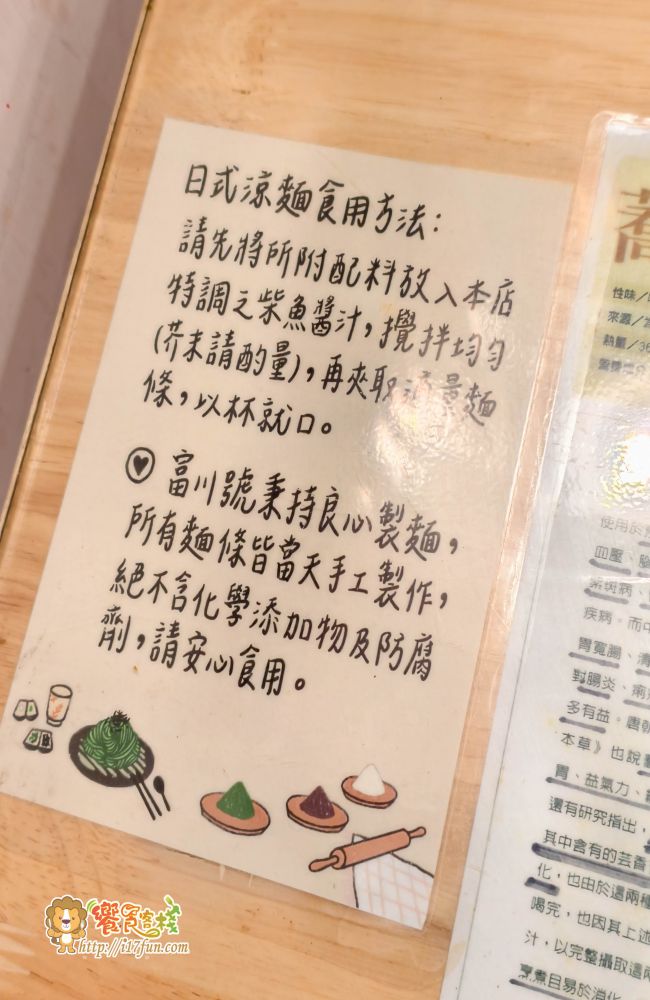 日式涼麵食用方法：
請先將所附配料放入本店
特調之柴魚醬汁，攪拌均勻
(芥末請酌量)，再夾取適量麵
條，以杯就口。
富川號秉持良心製麵，
所有麵條皆當天手工製作，
絕不含化學添加物及防腐
劑，請安心食用。
蕎
性味／
來源／
熱量／36
營養成分
使用於
血壓、腦
紫斑病、
疾病。而中
胃寬腸、清
對腸炎、痢
多有益。唐朝
本草》也說
胃、益氣力、
還有研究指出，
其中含有的芸香
化，也由於這兩種
喝完，也因其上述
汁，以完整攝取這兩
烹煮目易於消化
饗食客棧
http://i17fun.com